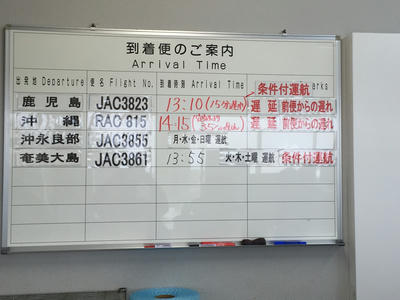 到着便のご案内
Arrival Time
出発地 Departure 便名 Flight No. 到着時刻 Arrival Time 条件付運航 arks
鹿児島 JAC3823 13:10 遅延 前便からの遅れ
沖縄 RAC 815 14:15 遅延 前便からの遅れ
沖永良部 JAC3855 月・水・金・日曜 運航
奄美大島 JAC3861 13:55 火・木・土曜 運航 条件付運航